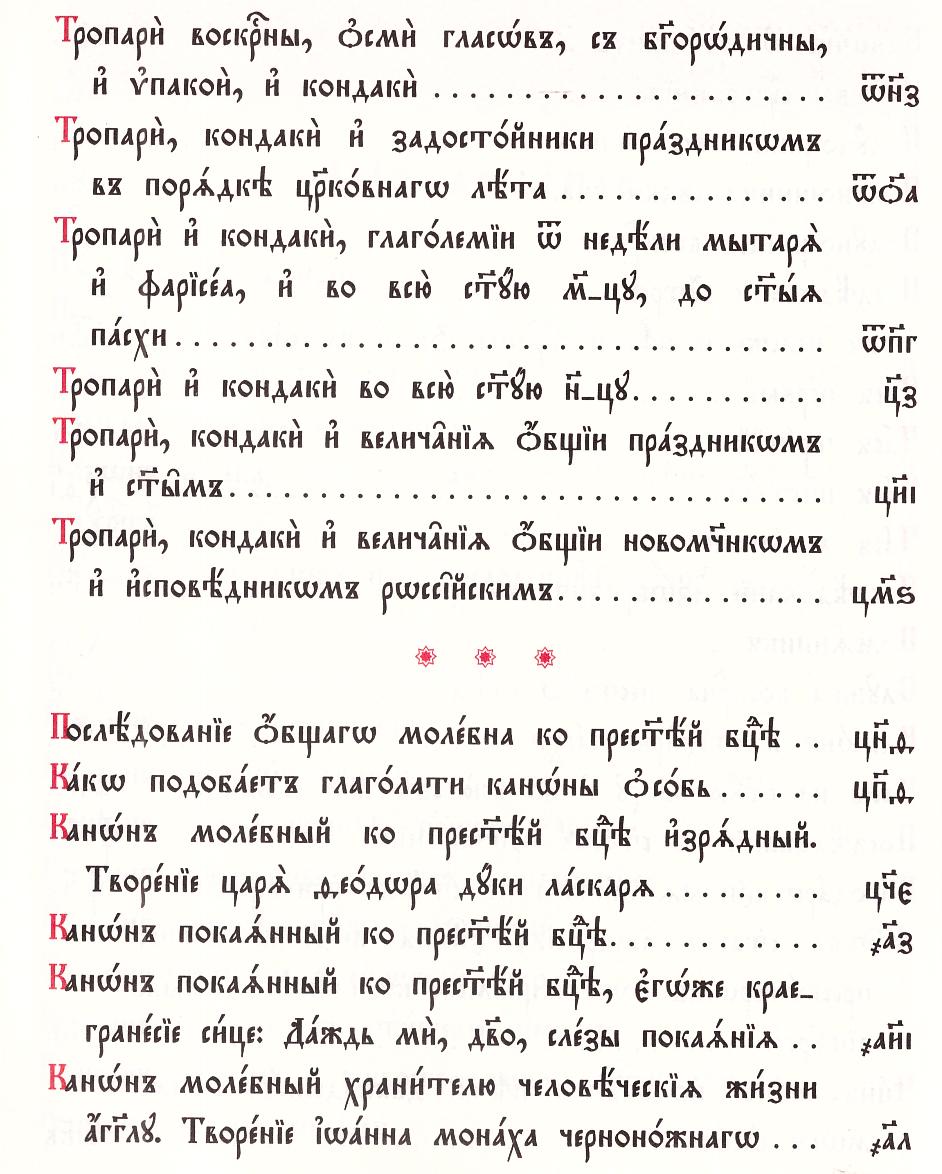 Тропари̑ воскр҃сны, ѻ҆смѝ гласѡ́въ, съ бг҃оро́дичны,
и҆ ѵ҆пакоѝ, и҆ кондакѝ . . . . . . . . . . . . . . . . . . . . . . ѿн҃з
Тропарѝ, кондакѝ и҆ задосто́йники пра́здникѡмъ
въ поря́дкѣ цр҃ко́внагѡ лѣ́та . . . . . . . . . . . . . . . ѿѻ҃а
Тропарѝ и҆ кондакѝ, глаго́лемїи ѿ недѣ́ли мытарѧ̀
и҆ фарїсе́а, и҆ во всю̀ ст҃ꙋ́ю м҃-цꙋ, до ст҃ы́ѧ
па́схи . . . . . . . . . . . . . . . . . . . . . . . . . . . . . . . . . . . . ѿп҃г
Тропарѝ и҆ кондакѝ во всю̀ ст҃ꙋ́ю н҃-цꙋ . . . . . . . . . . . ц҃з
Тропарѝ, кондакѝ и҆ велича̑нїѧ ѻ҆́бщїи пра́здникѡмъ
и҆ ст҃ы̑мъ . . . . . . . . . . . . . . . . . . . . . . . . . . . . . . . . . цн҃і
Тропарѝ, кондакѝ и҆ велича̑нїѧ ѻ҆́бщїи новомч҃нкѡмъ
и҆ и҆сповѣ́дникѡмъ рѡссі̑йскимъ . . . . . . . . . . . . . . . цм҃ѕ
Послѣ́дованїе ѻ҆́бщагѡ моле́бна ко прест҃ѣ́й бцⷣѣ . . цн҃ѳ
Ка́кѡ подоба́етъ глаго́лати канѡ́ны ѻ҆со́бь . . . . . . цп҃ѳ
Канѡ́нъ моле́бный ко прест҃ѣ́й бцⷣѣ и҆зрѧ́дный.
Творе́нїе царѧ̀ ѳео́дѡра дꙋ́ки ла́скарѧ . . . . . . . . . цч҃є
Канѡ́нъ покаѧ́нный ко прест҃ѣ́й бцⷣѣ . . . . . . . . . . . . ҂а҃з
Канѡ́нъ покаѧ́нный ко прест҃ѣ́й бцⷣѣ, є҆гѡ́же крае-
гране́сїе си́це: Да́ждь мѝ, дв҃о, сле́зы покаѧ́нїѧ . . ҂аи҃і
Канѡ́нъ моле́бный храни́телю человѣ́ческїѧ жи́зни
а҆́гг҃лꙋ. Творе́нїе і҆ѡа́нна мона́ха черноно́жнагѡ . . . ҂а҃л